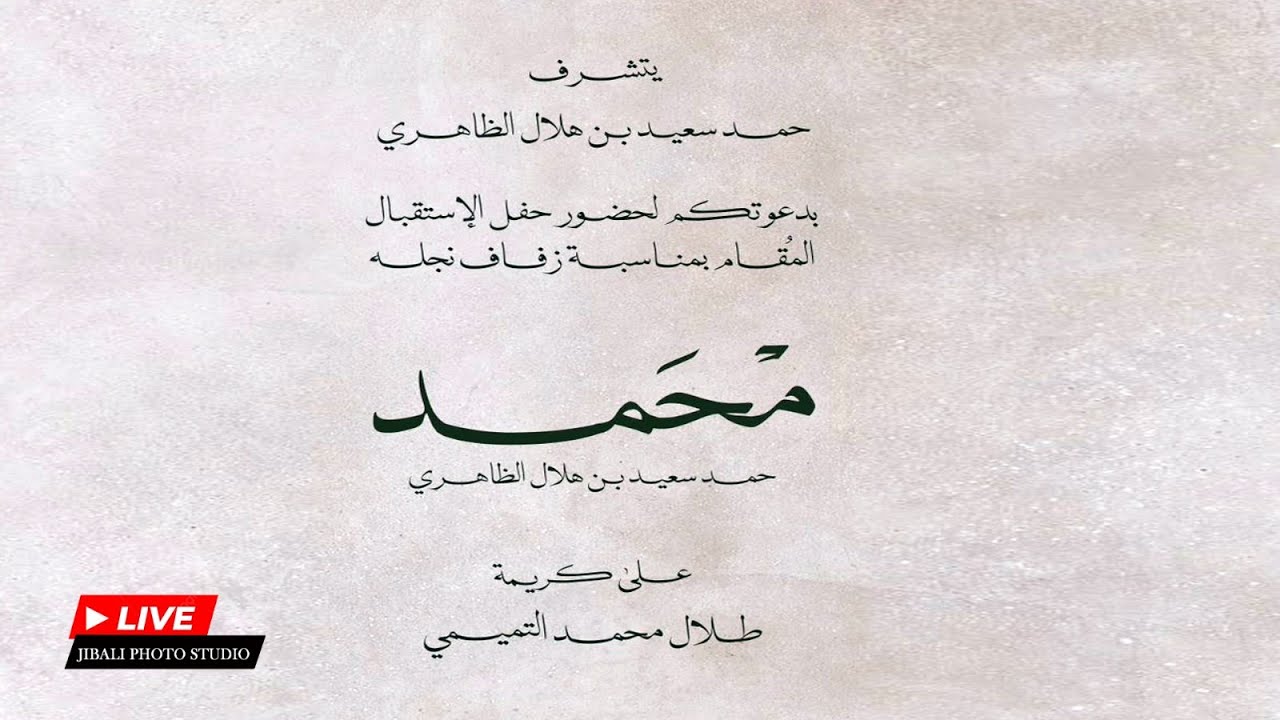 يتشرف
حمد سعيد بن هلال الظاهري
بدعوتكم لحضور حفل الإستقبال
المُقام بمناسبة زفاف نجله
مْحَمد
حمد سعيد بن هلال الظاهري
على كريمة
طلال محمد التميمي
LIVE
JIBALI PHOTO STUDIO